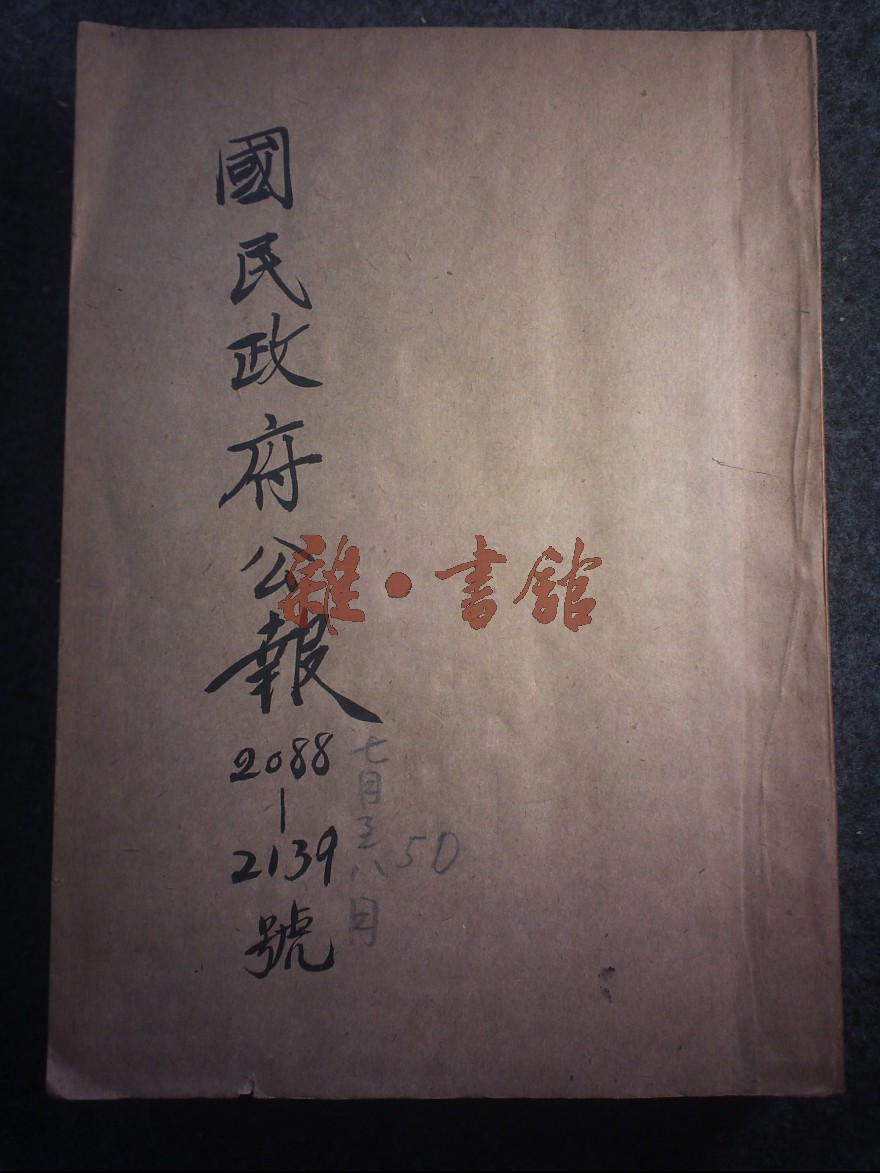 國民政府公報
2088
|
2139
號
七月至八月
50
雜·書館